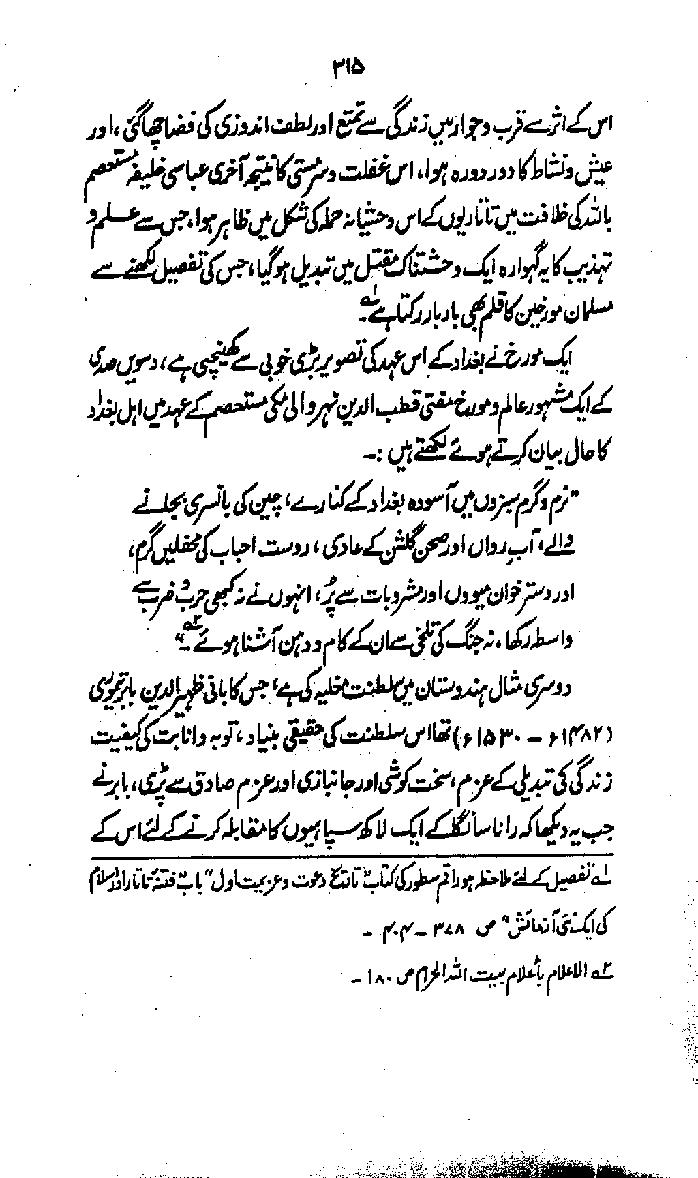 ۳۱۵
اس کے اثر سے قرب و جوار میں زندگی سے تمتع اور لطف اندوزی کی فضا چھا گئی، اور
عیش و نشاط کا دور دورہ ہوا، اس غفلت و سرمستی کا نتیجہ آخری عباسی خلیفہ مستعصم
باللہ کی خلافت میں تاتاریوں کے اس وحشیانہ حملہ کی شکل میں ظاہر ہوا، جس سے علم و
تہذیب کا یہ گہوارہ ایک وحشتناک مقتل میں تبدیل ہو گیا، جس کی تفصیل لکھنے سے
مسلمان مورخین کا قلم بھی بار بار رکتا ہے۔ لہ
ایک مورخ نے بغداد کے اس عہد کی تصویر بڑی خوبی سے کھینچی ہے، دسویں صدی
کے ایک مشہور عالم و مورخ مفتی قطب الدین نہروالی مکی مستعصم کے عہد میں اہل بغداد
کا حال بیان کرتے ہوئے لکھتے ہیں :۔
"نرم و گرم سبزوں میں آسودہ بغداد کے کنارے، چین کی بانسری بجانے
والے، آب رواں اور صحن گلشن کے عادی، دوست احباب کی محفلیں گرم،
اور دسترخوان میووں اور مشروبات سے پُر، انہوں نے نہ کبھی حرب و ضرب سے
واسطہ رکھا، نہ جنگ کی تلخی سے ان کے کام و دہن آشنا ہوئے۔" ۲ہ
دوسری مثال ہندوستان میں سلطنت مغلیہ کی ہے، جس کا بانی ظہیر الدین بابر تیموری
(۱۴۸۲ء – ۱۵۳۰ء) تھا اس سلطنت کی حقیقی بنیاد، توبہ و انابت کی کیفیت
زندگی کی تبدیلی کے عزم، سخت کوشی اور جانبازی اور عزم صادق سے پڑی، بابر نے
جب یہ دیکھا کہ رانا سانگا کے ایک لاکھ سپاہیوں کا مقابلہ کرنے کے لئے اس کے
لہ تفصیل کے لئے ملاحظہ ہو راقم سطور کی کتاب "تاریخ دعوت و عزیمت اول" باب "فتنۂ تاتار اور اسلام
کی ایک نئی آزمائش" ص ۳۷۸ – ۴۰۴ ۔
۲ہ الاعلام بأعلام بیت اللہ الحرام ص ۱۸۰ ۔